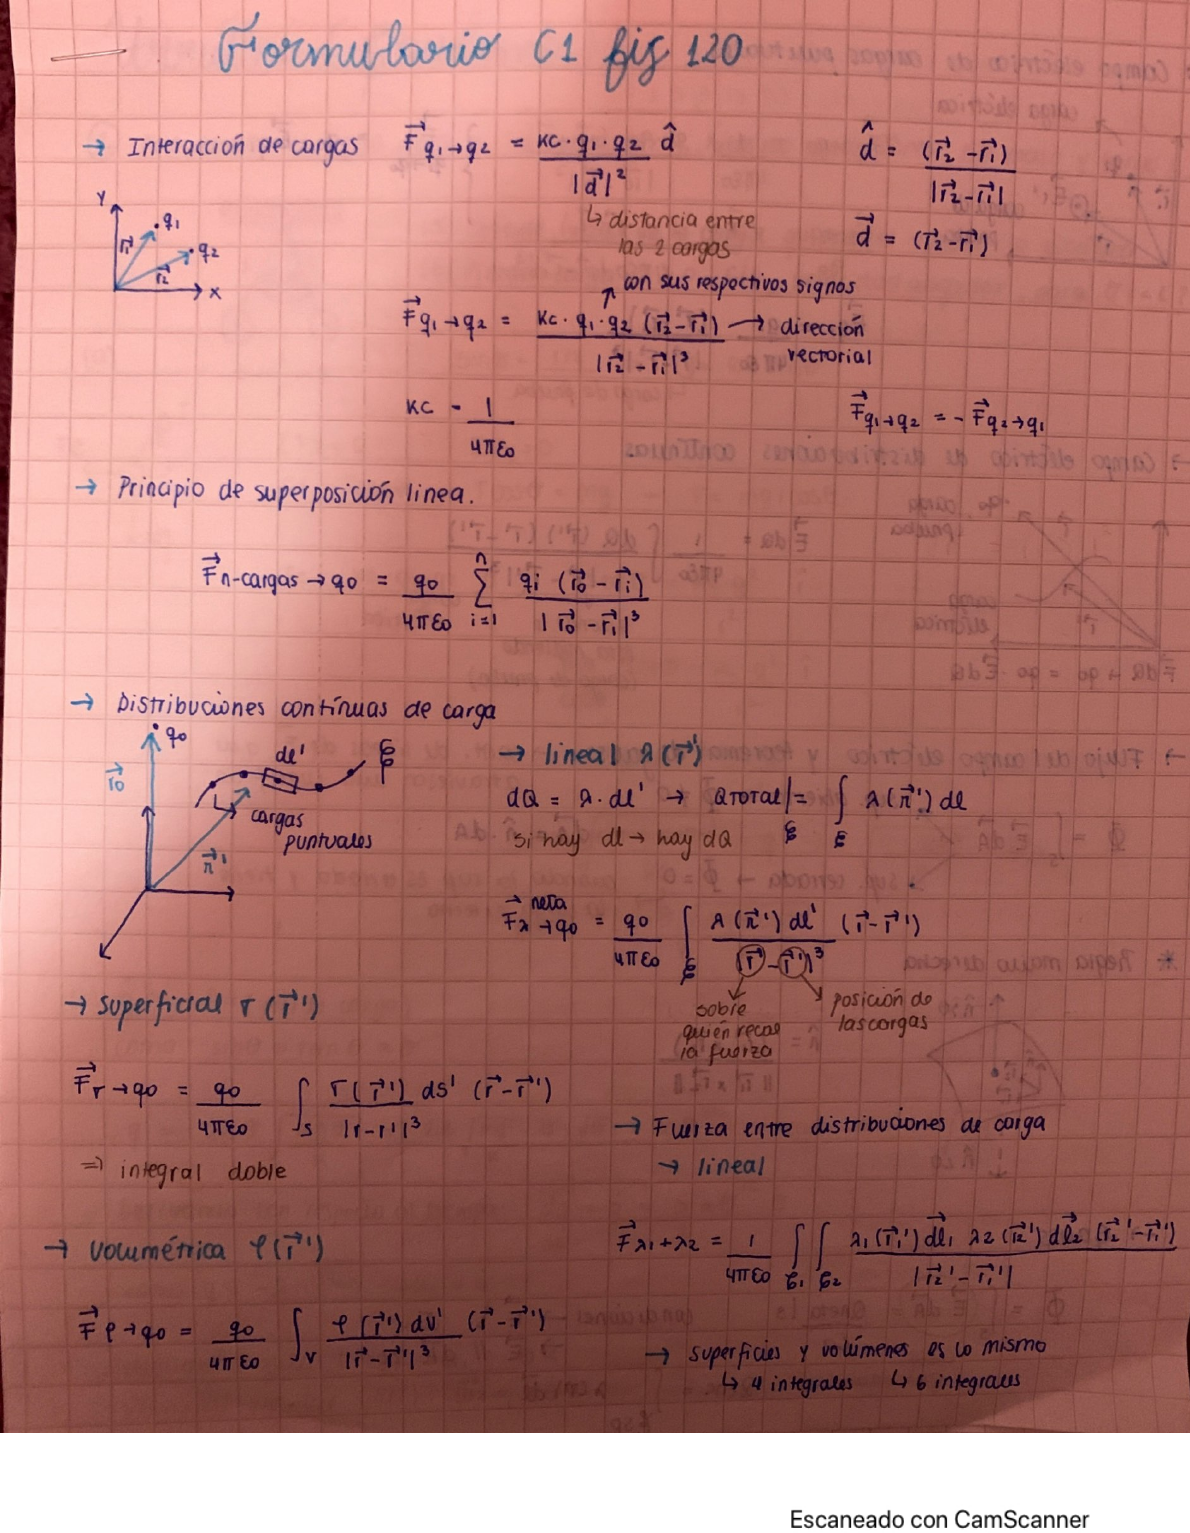 Formulario C1 fis 120
→ Interacción de cargas F⃗ q1→q2 = kc·q1·q2 d̂ / |d⃗|²
d̂ = (r⃗2 - r⃗1) / |r⃗2 - r⃗1|
↳ distancia entre
las 2 cargas
d⃗ = (r⃗2 - r⃗1)
Y
q1
r⃗1
q2
r⃗2
X
con sus respectivos signos
F⃗ q1→q2 = kc·q1·q2 (r⃗2 - r⃗1) / |r⃗2 - r⃗1|³ → dirección
vectorial
kc - 1 / 4πε0
F⃗ q1→q2 = - F⃗ q2→q1
→ Principio de superposición linea.
F⃗ n-cargas → q0 = q0 / 4πε0 Σ i=1 n qi (r⃗0 - r⃗i) / |r⃗0 - r⃗i|³
→ Distribuciones contínuas de carga
q0
r⃗0
dl'
ξ
cargas
puntuales
r⃗'
→ lineal λ(r⃗')
dQ = λ·dl' → QTOTAL|ξ = ∫ξ λ(r⃗') dl
si hay dl → hay dQ
F⃗ neta λ→q0 = q0 / 4πε0 ∫ξ λ(r⃗') dl' (r⃗ - r⃗') / |r⃗ - r⃗'|³
sobre
quién recae
la fuerza
posición de
las cargas
→ superficial σ(r⃗')
F⃗ σ→q0 = q0 / 4πε0 ∫S σ(r⃗') ds' (r⃗ - r⃗') / |r - r'|³
⇒ integral doble
→ Fuerza entre distribuciones de carga
→ lineal
F⃗ λ1+λ2 = 1 / 4πε0 ∫ξ1 ∫ξ2 λ1(r⃗1') d⃗l1 λ2(r⃗2') d⃗l2 (r⃗2' - r⃗1') / |r⃗2' - r⃗1'|
→ volumétrica ρ(r⃗')
F⃗ ρ→q0 = q0 / 4πε0 ∫V ρ(r⃗') dv' (r⃗ - r⃗') / |r⃗ - r⃗'|³
→ superficies y volúmenes es lo mismo
↳ 4 integrales ↳ 6 integrales
Escaneado con CamScanner